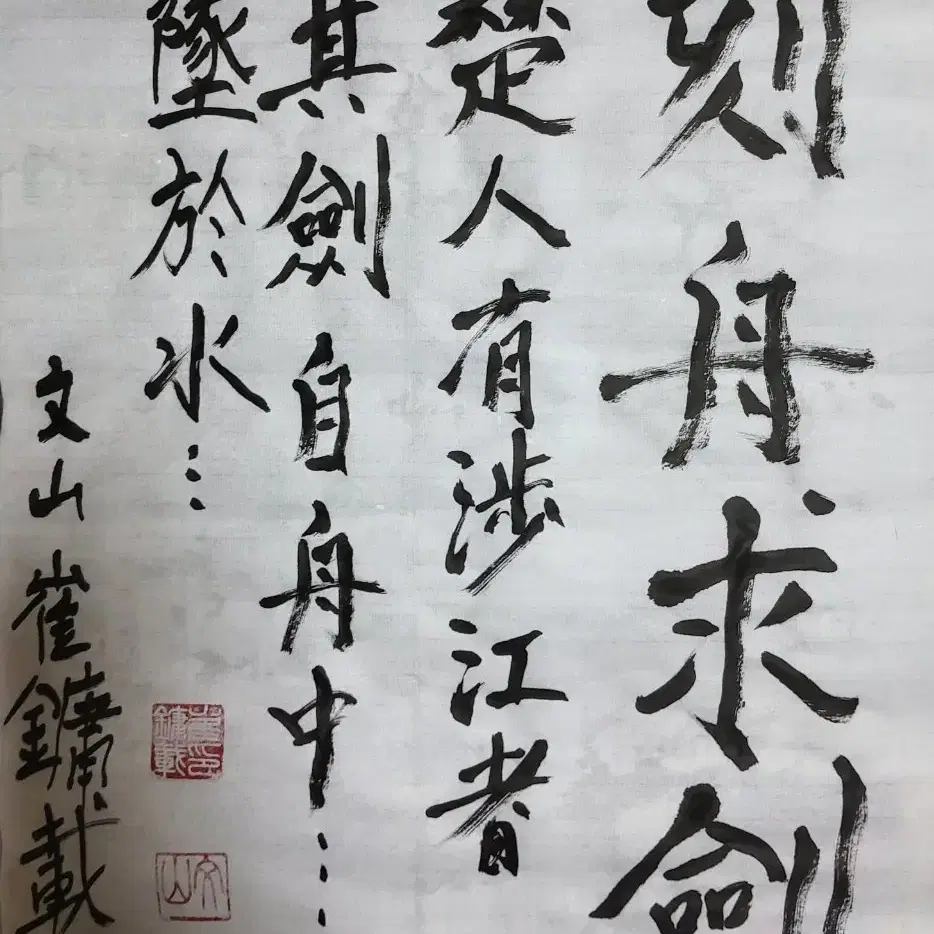 刻舟求劍
楚人有涉江者
其劍自舟中…
墜於水…
文山 崔鏞載
崔鏞載印
文山